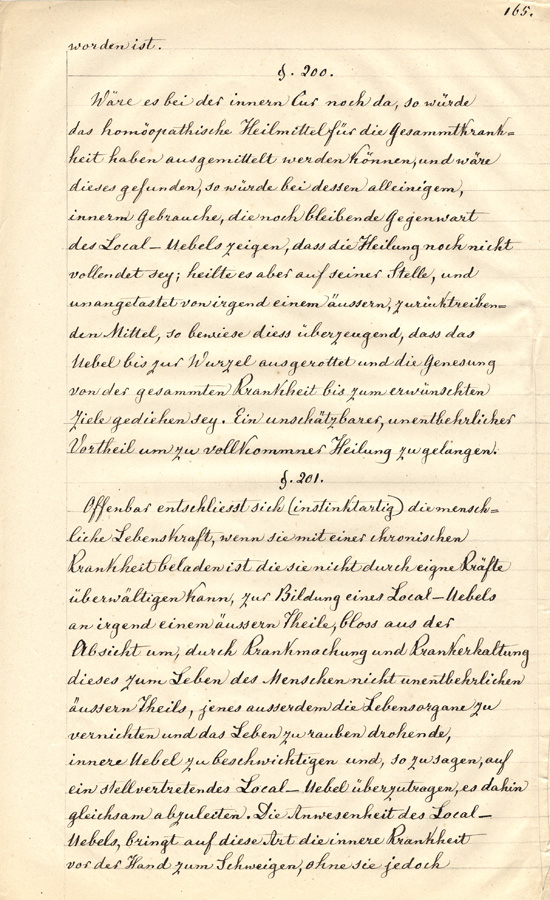 165.
worden ist.
§. 200.
Wäre es bei der innern Cur noch da, so würde
das homöopathische Heilmittel für die Gesammtkrank=
heit haben ausgemittelt werden können, und wäre
dieses gefunden, so würde bei dessen alleinigem,
innerm Gebrauche, die noch bleibende Gegenwart
des Local-Uebels zeigen, dass die Heilung noch nicht
vollendet sey; heilte es aber auf seiner Stelle, und
unangetastet von irgend einem äussern, zurücktreiben=
den Mittel, so bewiese diess überzeugend, dass das
Uebel bis zur Wurzel ausgerottet und die Genesung
von der gesammten Krankheit bis zum erwünschten
Ziele gediehen sey. Ein unschätzbarer, unentbehrlicher
Vortheil um zu vollkommner Heilung zu gelangen.
§. 201.
Offenbar entschliesst sich (instinktartig) die mensch=
liche Lebenskraft, wenn sie mit einer chronischen
Krankheit beladen ist die sie nicht durch eigne Kräfte
überwältigen kann, zur Bildung eines Local-Uebels
an irgend einem äussern Theile, bloss aus der
Absicht um, durch Krankmachung und Krankerhaltung
dieses zum Leben des Menschen nicht unentbehrlichen
äussern Theils, jenes ausserdem die Lebensorgane zu
vernichten und das Leben zu rauben drohende,
innere Uebel zu beschwichtigen und, so zu sagen, auf
ein stellvertretendes Local-Uebel überzutragen, es dahin
gleichsam abzuleiten. Die Anwesenheit des Local-
Uebels, bringt auf diese Art die innere Krankheit
vor der Hand zum Schweigen, ohne sie jedoch